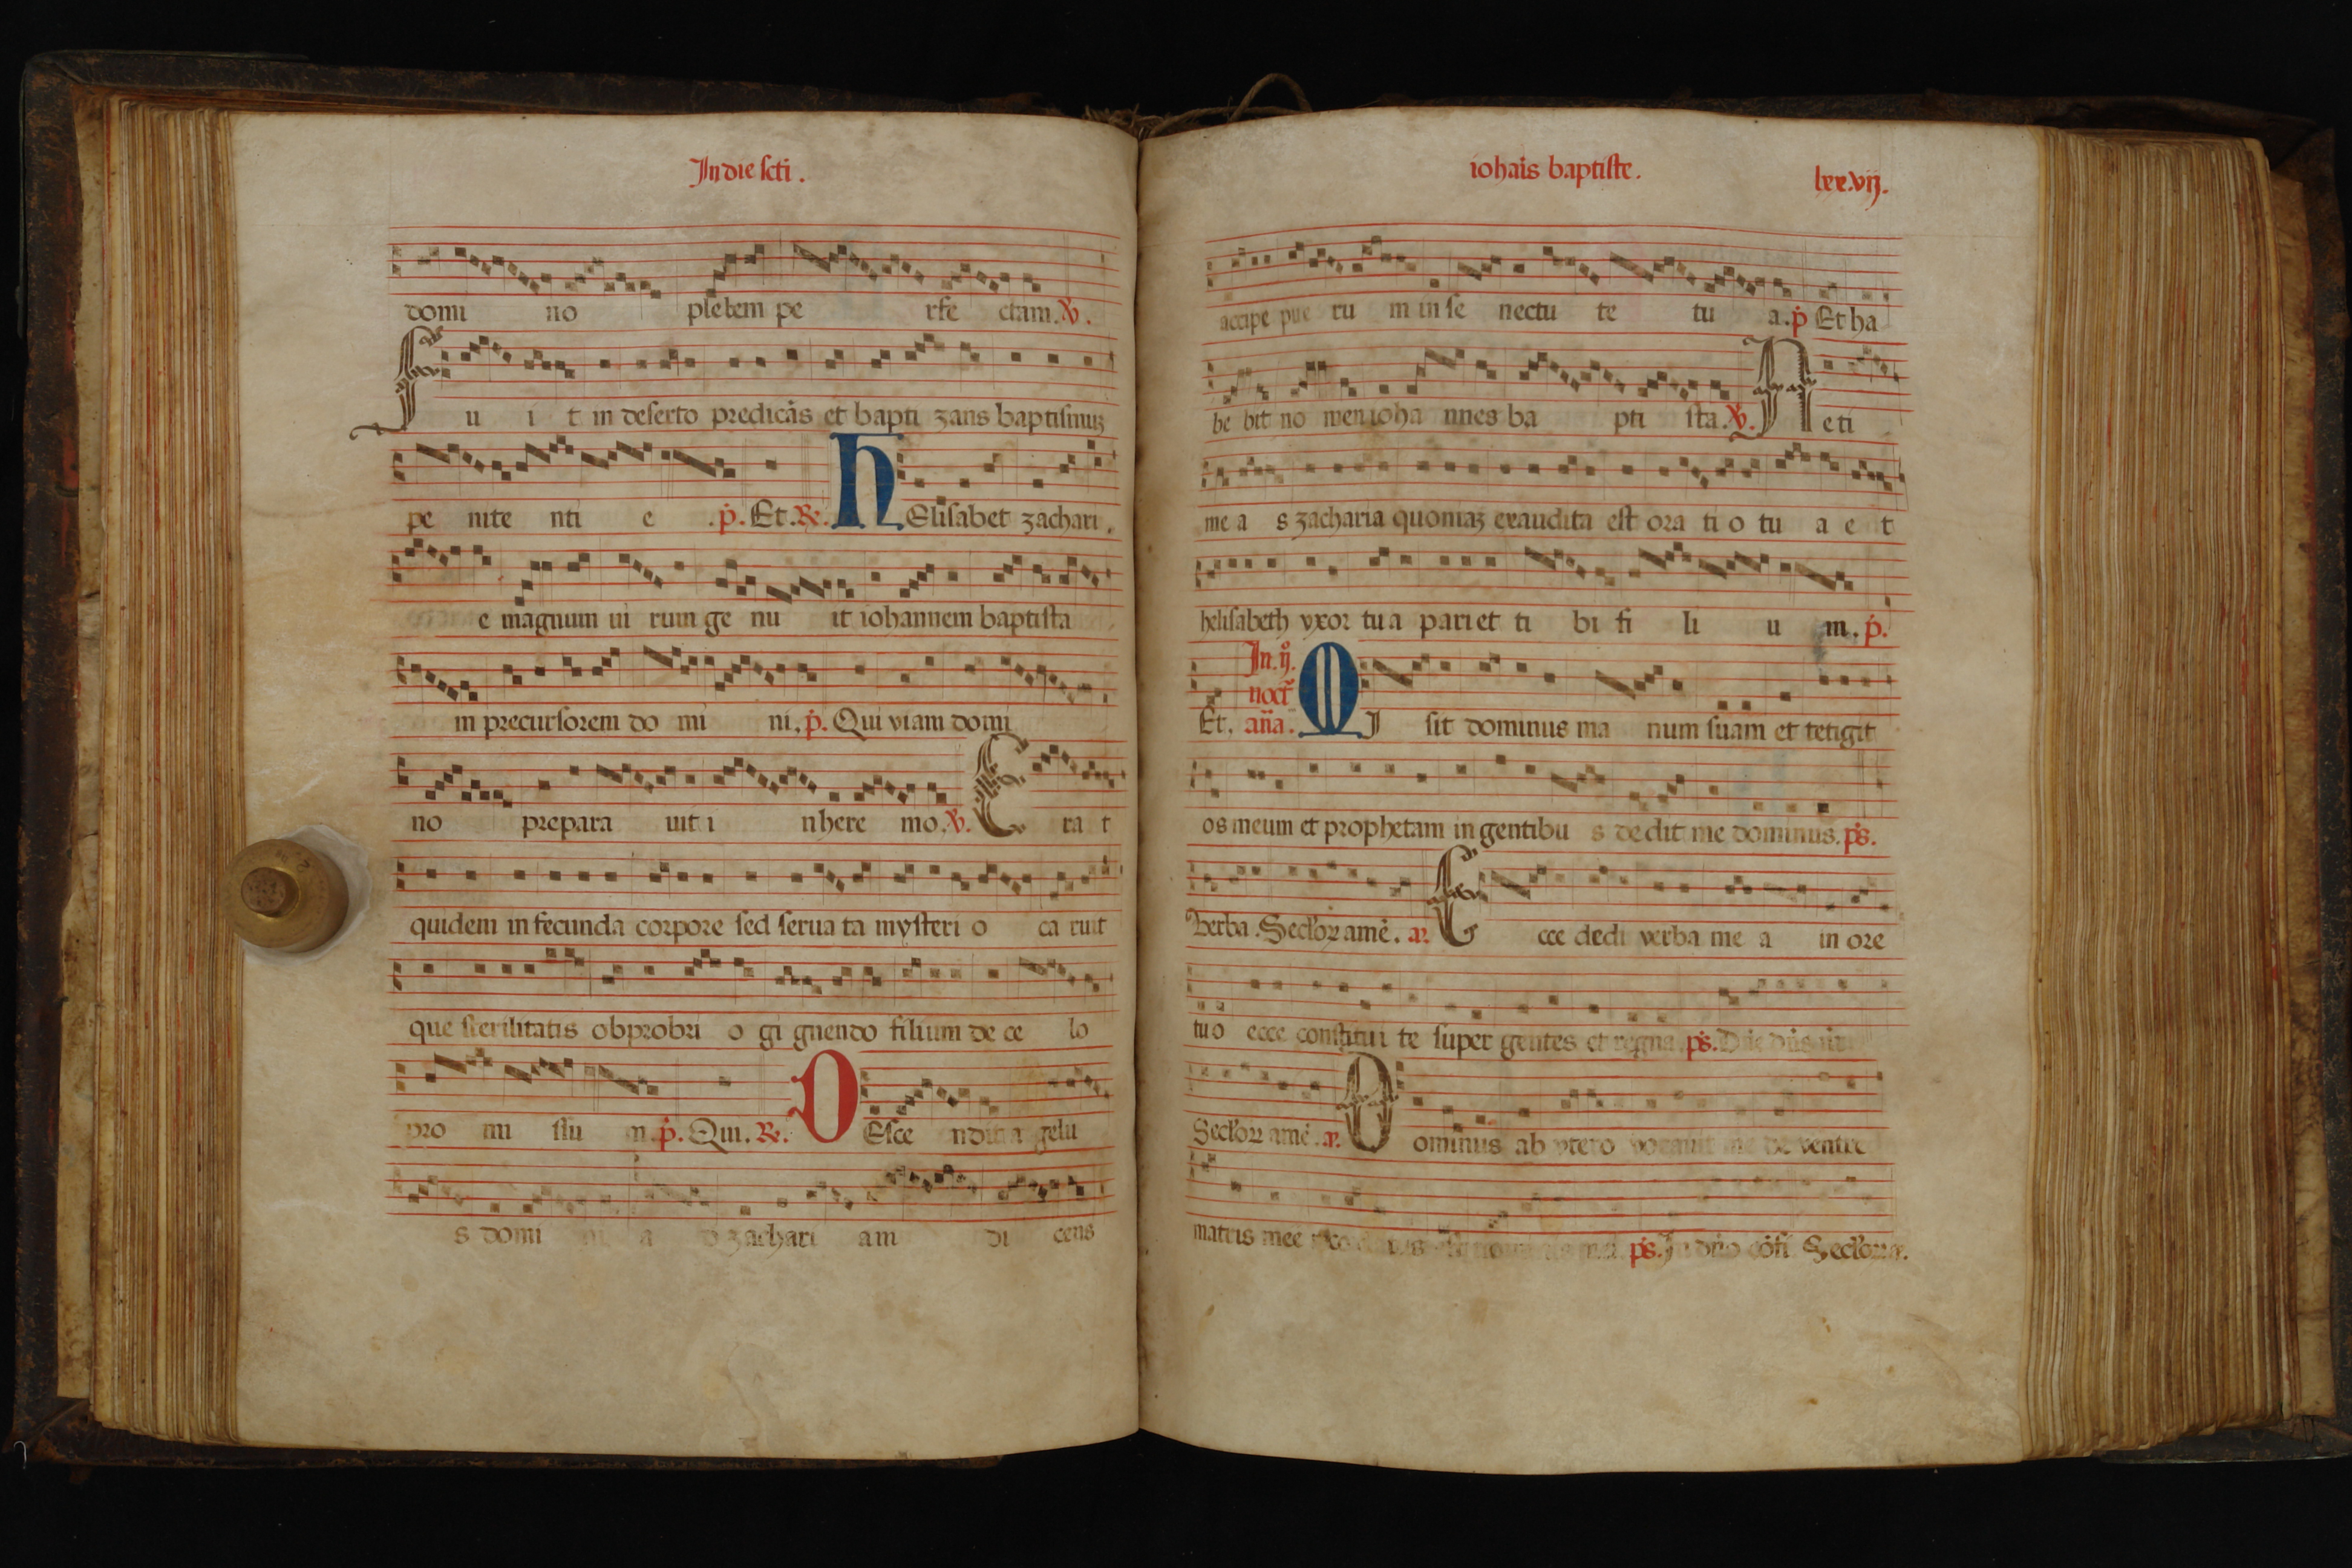 In die scti.
domi no plebem pe rfe ctam. v.
F u i t in deserto predicās et bapti zans baptismuȝ
pe nite nti e .p. Et. R. H Elisabet zachari.
e magnum ui rum ge nu it iohannem baptista
m precursorem do mi ni. p. Qui viam domi
no prepara uit i nhere mo. v. E ra t
quidem in fecunda corpore sed serua ta mysteri o ca ruit
que sterilitatis obprobri o gi gnendo filium de ce lo
pro mi ssu m. p. Qui. R. D Esce ndit a gelu
s domi ni a d zachari am di cens
iohais baptiste. lxx.vij.
accipe pue ru m in se nectu te tu a. p Et ha
be bit no men ioha nnes ba pti sta. v. N eti
me a s zacharia quoniaȝ exaudita est ora ti o tu a e t
helisabeth vxor tua pariet ti bi fi li u m. p.
In. ij.
noct
Et. aña. M I sit dominus ma num suam et tetigit
os meum et prophetam in gentibu s dedit me dominus. ps.
Verba. Seclorꝝ amē. a. E cce dedi verba me a in ore
tuo ecce constitui te super gentes et regna. ps. Dñe dñs nr
Seclorꝝ amē. a. D ominus ab vtero vocauit me de ventre
matris mee ps. In dño cōfi Seclorꝝ a.